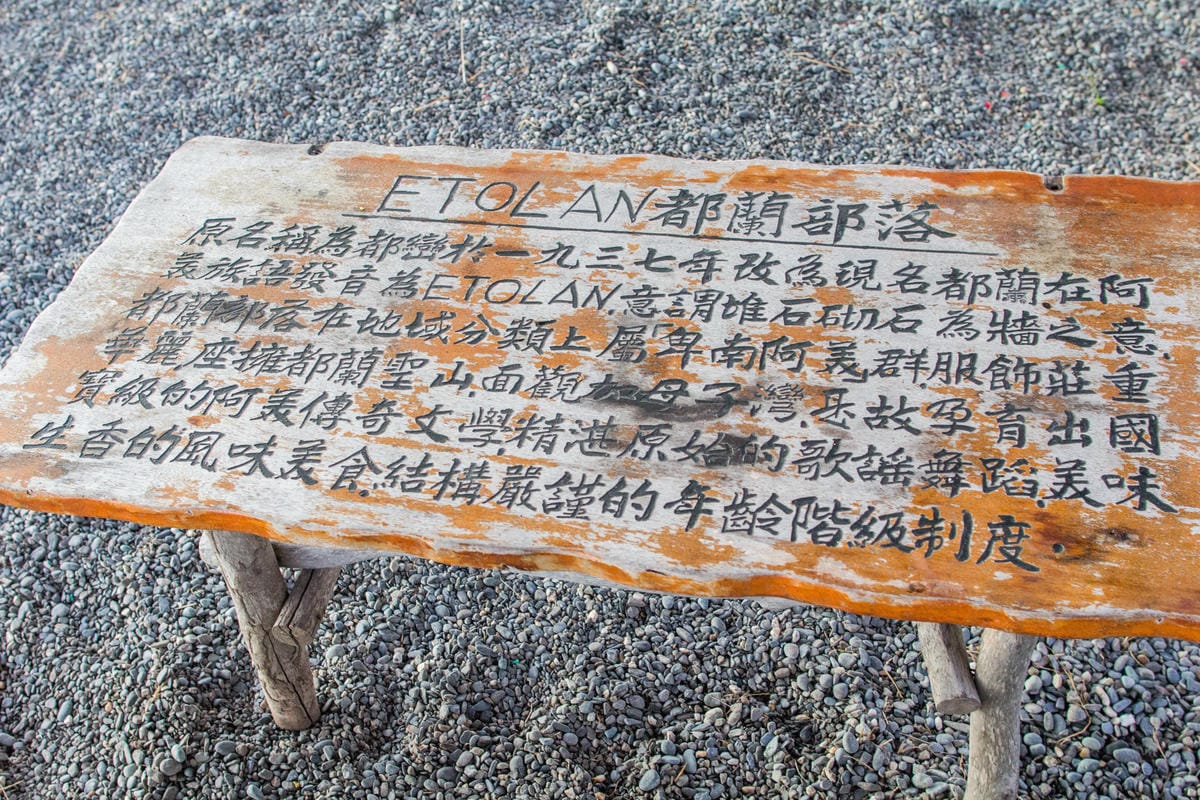 ETOLAN都蘭部落
原名稱為都巒於一九三七年改為現名都蘭在阿
美族語發音為ETOLAN,意謂堆石砌石為牆之意.
都蘭部落在地域分類上屬「卑南阿美,群服飾莊重
華麗座擁都蘭聖山,面觀加母子灣.是故孕育出國
寶級的阿美傳奇文學,精湛原始的歌謠舞蹈,美味
生香的風味美食,結構嚴謹的年齡階級制度.